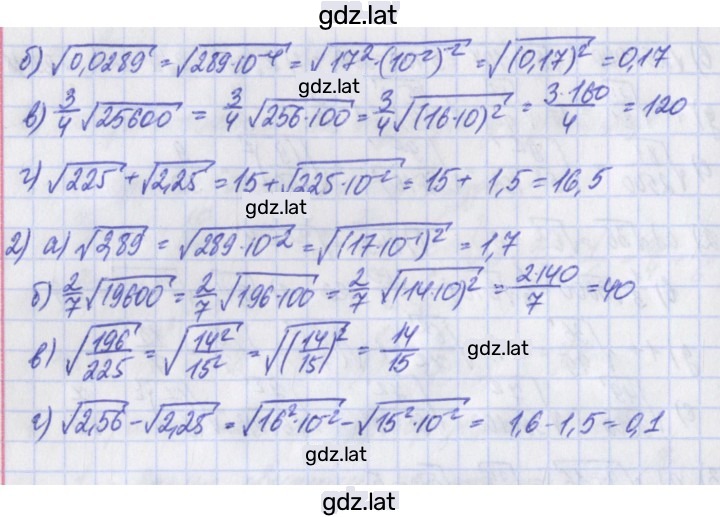 gdz.lat
б) √0,0289 = √289·10⁻⁴ = √17²·(10⁻²)⁻² = √(0,17)² = 0,17
gdz.lat
в) 3/4 √25600 = 3/4 √256·100 = 3/4 √(16·10)² = 3·160/4 = 120
г) √225 + √2,25 = 15 + √225·10⁻² = 15 + 1,5 = 16,5
gdz.lat
2) а) √2,89 = √289·10⁻² = √(17·10⁻¹)² = 1,7
б) 2/7 √19600 = 2/7 √196·100 = 2/7 √(14·10)² = 2·140/7 = 40
в) √196/225 = √14²/15² = √(14/15)² = 14/15
gdz.lat
г) √2,56 - √2,25 = √16²·10⁻² - √15²·10⁻² = 1,6 - 1,5 = 0,1
gdz.lat
gdz.lat